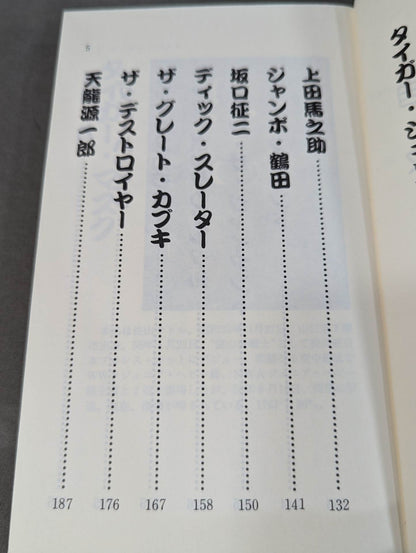 タイガー・ジェ
上田馬之助 132
ジャンボ・鶴田 141
坂口征二 150
ディック・スレーター 158
ザ・グレート・カブキ 167
ザ・デストロイヤー 176
天龍源一郎 187
5